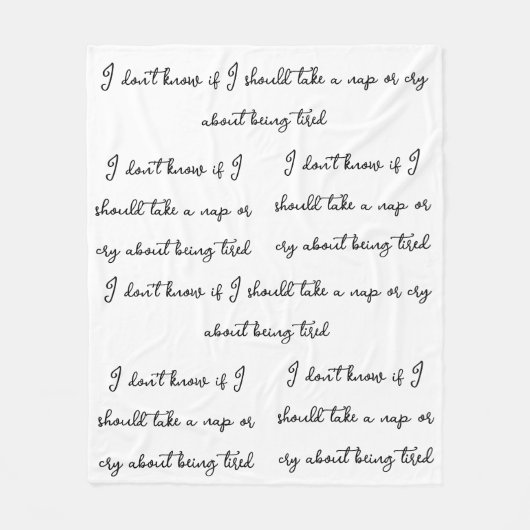 I don't know if I should take a nap or cry
about being tired
I don't know if I
should take a nap or
cry about being tired
I don't know if I
should take a nap or
cry about being tired
I don't know if I should take a nap or cry
about being tired
I don't know if I
should take a nap or
cry about being tired
I don't know if I
should take a nap or
cry about being tired